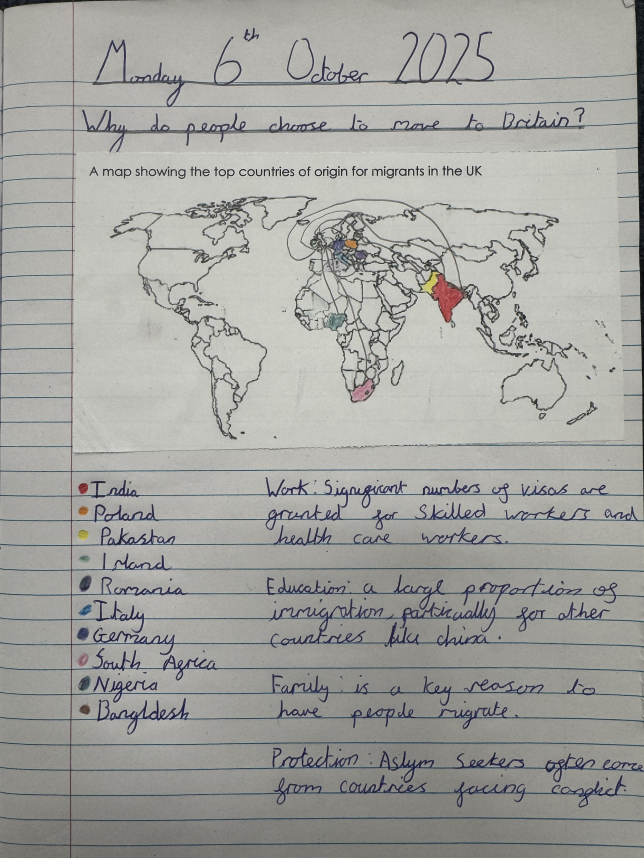 Monday 6th October 2025
Why do people choose to move to Britain?
A map showing the top countries of origin for migrants in the UK
India
Poland
Pakastan
Irland
Romania
Italy
Germany
South Africa
Nigeria
Bangldesh
Work: Signigicant numbers of visas are
granted for Skilled workers and
health care workers.
Education: a large proportion of
immigration, partically for other
countries like china.
Family: is a key reason to
have people migrate.
Protection: Aslym Seekers often come
from countries facing conflict.